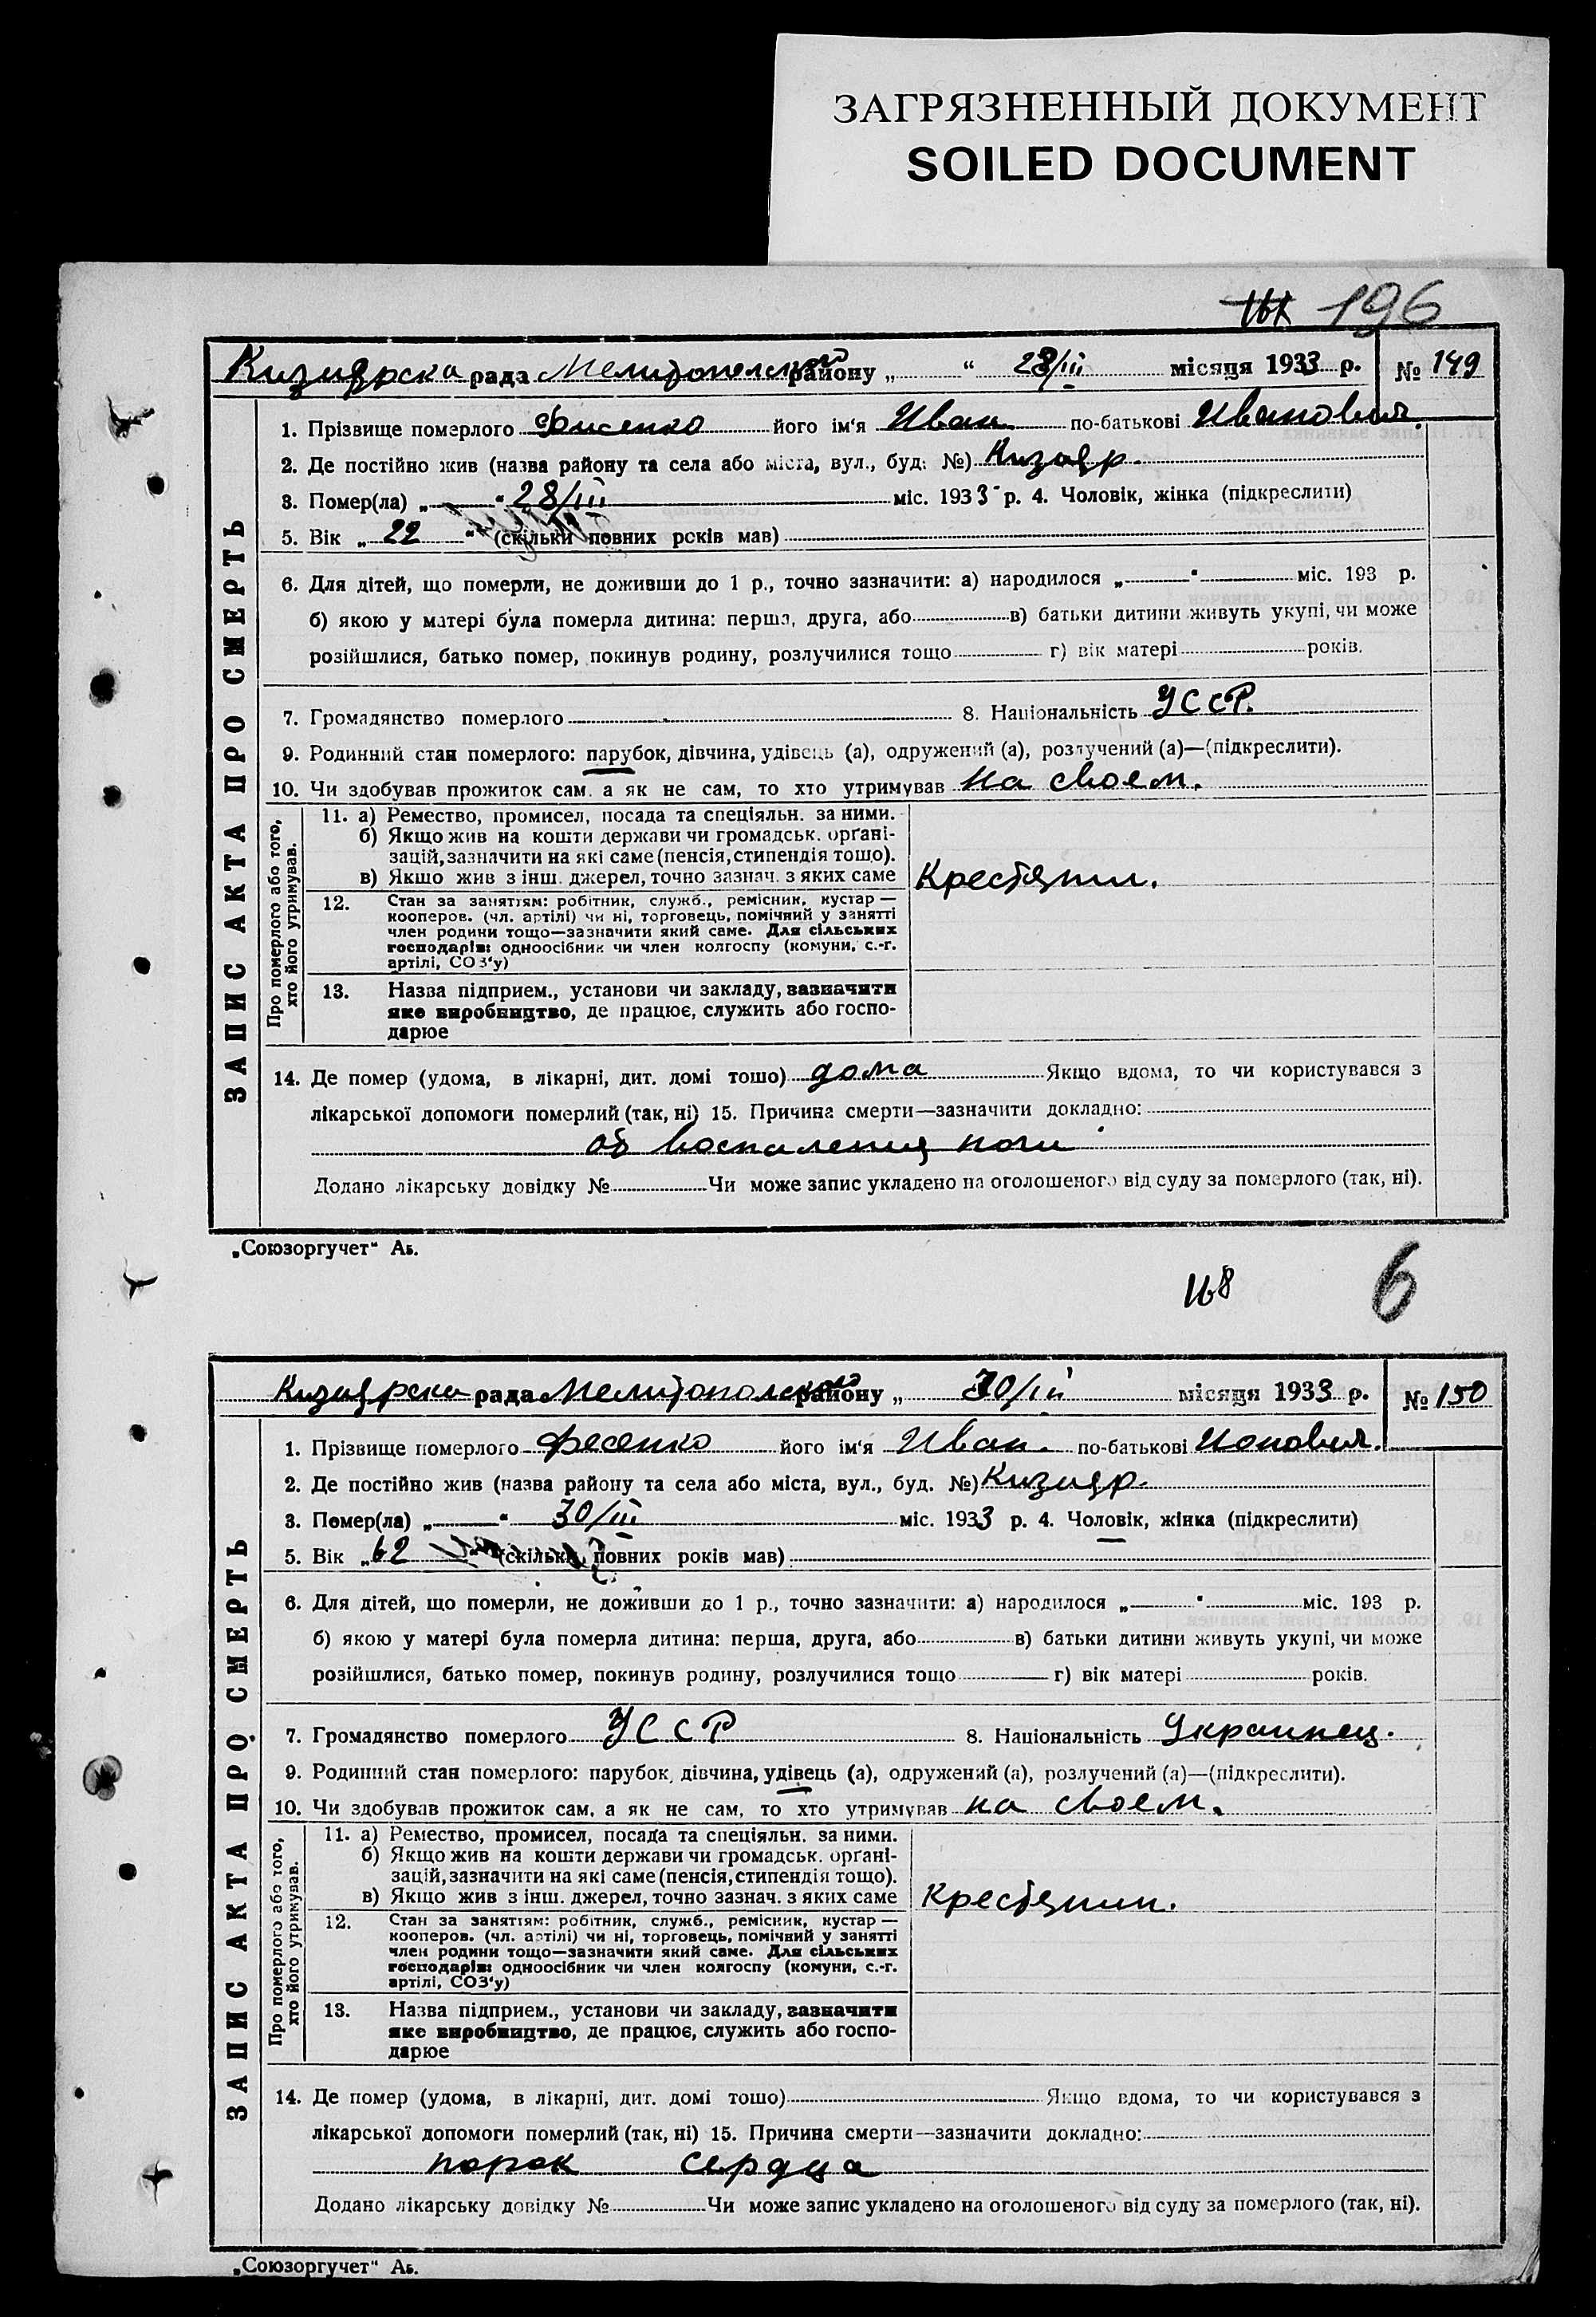 ЗАГРЯЗНЕННЫЙ ДОКУМЕНТ
SOILED DOCUMENT
196
Кизиярска рада Мелитопольского району „ “ 28/III місяця 1933 р. № 149
ЗАПИС АКТА ПРО СМЕРТЬ
1. Прізвище померлого Фисенко його ім'я Иван по-батькові Иванович.
2. Де постійно жив (назва району та села або міста, вул., буд. №) Кизияр.
3. Помер(ла) „ “ 28/III міс. 1933 р. 4. Чоловік, жінка (підкреслити)
5. Вік „ 22 “ (скільки повних років мав)
6. Для дітей, що померли, не доживши до 1 р., точно зазначити: а) народилося „ “ міс. 193 р.
б) якою у матері була померла дитина: перша, друга, або в) батьки дитини живуть укупі, чи може
розійшлися, батько помер, покинув родину, розлучилися тощо г) вік матері років.
7. Громадянство померлого 8. Національність УССР.
9. Родинний стан померлого: парубок, дівчина, удівець (а), одружений (а), розлучений (а)—(підкреслити).
10. Чи здобував прожиток сам, а як не сам, то хто утримував на своем.
Про померлого або того, хто його утримував.
11. а) Ремество, промисел, посада та спеціяльн. за ними.
б) Якщо жив на кошти держави чи громадськ. орґані-
зацій, зазначити на які саме (пенсія, стипендія тощо).
в) Якщо жив з інш. джерел, точно зазнач. з яких саме Крестянин.
12. Стан за заняттям: робітник, служб., ремісник, кустар—
кооперов. (чл. артілі) чи ні, торговець, помічний у занятті
член родини тощо—зазначити який саме. Для сільських
господарів: одноосібник чи член колгоспу (комуни, с.-г.
артілі, СОЗ'у)
13. Назва підприєм., установи чи закладу, зазначити
яке виробництво, де працює, служить або госпо-
дарює
14. Де помер (удома, в лікарні, дит. домі тошо) дома Якщо вдома, то чи користувався з
лікарської допомоги померлий (так, ні) 15. Причина смерти—зазначити докладно:
от воспаления ноги
Додано лікарську довідку № Чи може запис укладено на оголошеного від суду за померлого (так, ні).
„Союзоргучет“ Аь.
168 6
Кизиярска рада Мелитопольского району „ 30/III місяця 1933 р. № 150
ЗАПИС АКТА ПРО СМЕРТЬ
1. Прізвище померлого Фесенко його ім'я Иван. по-батькові Ионович.
2. Де постійно жив (назва району та села або міста, вул., буд. №) Кизияр.
3. Помер(ла) „ “ 30/III міс. 1933 р. 4. Чоловік, жінка (підкреслити)
5. Вік „ 62 “ (скільки повних років мав)
6. Для дітей, що померли, не доживши до 1 р., точно зазначити: а) народилося „ “ міс. 193 р.
б) якою у матері була померла дитина: перша, друга, або в) батьки дитини живуть укупі, чи може
розійшлися, батько помер, покинув родину, розлучилися тощо г) вік матері років.
7. Громадянство померлого УССР 8. Національність Украинец.
9. Родинний стан померлого: парубок, дівчина, удівець (а), одружений (а), розлучений (а)—(підкреслити).
10. Чи здобував прожиток сам, а як не сам, то хто утримував на своем.
Про померлого або того, хто його утримував.
11. а) Ремество, промисел, посада та спеціяльн. за ними.
б) Якщо жив на кошти держави чи громадськ. орґані-
зацій, зазначити на які саме (пенсія, стипендія тощо).
в) Якщо жив з інш. джерел, точно зазнач. з яких саме Крестянин.
12. Стан за заняттям: робітник, служб., ремісник, кустар—
кооперов. (чл. артілі) чи ні, торговець, помічний у занятті
член родини тощо—зазначити який саме. Для сільських
господарів: одноосібник чи член колгоспу (комуни, с.-г.
артілі, СОЗ'у)
13. Назва підприєм., установи чи закладу, зазначити
яке виробництво, де працює, служить або госпо-
дарює
14. Де помер (удома, в лікарні, дит. домі тошо) Якщо вдома, то чи користувався з
лікарської допомоги померлий (так, ні) 15. Причина смерти—зазначити докладно:
порок сердца
Додано лікарську довідку № Чи може запис укладено на оголошеного від суду за померлого (так, ні).
„Союзоргучет“ Аь.